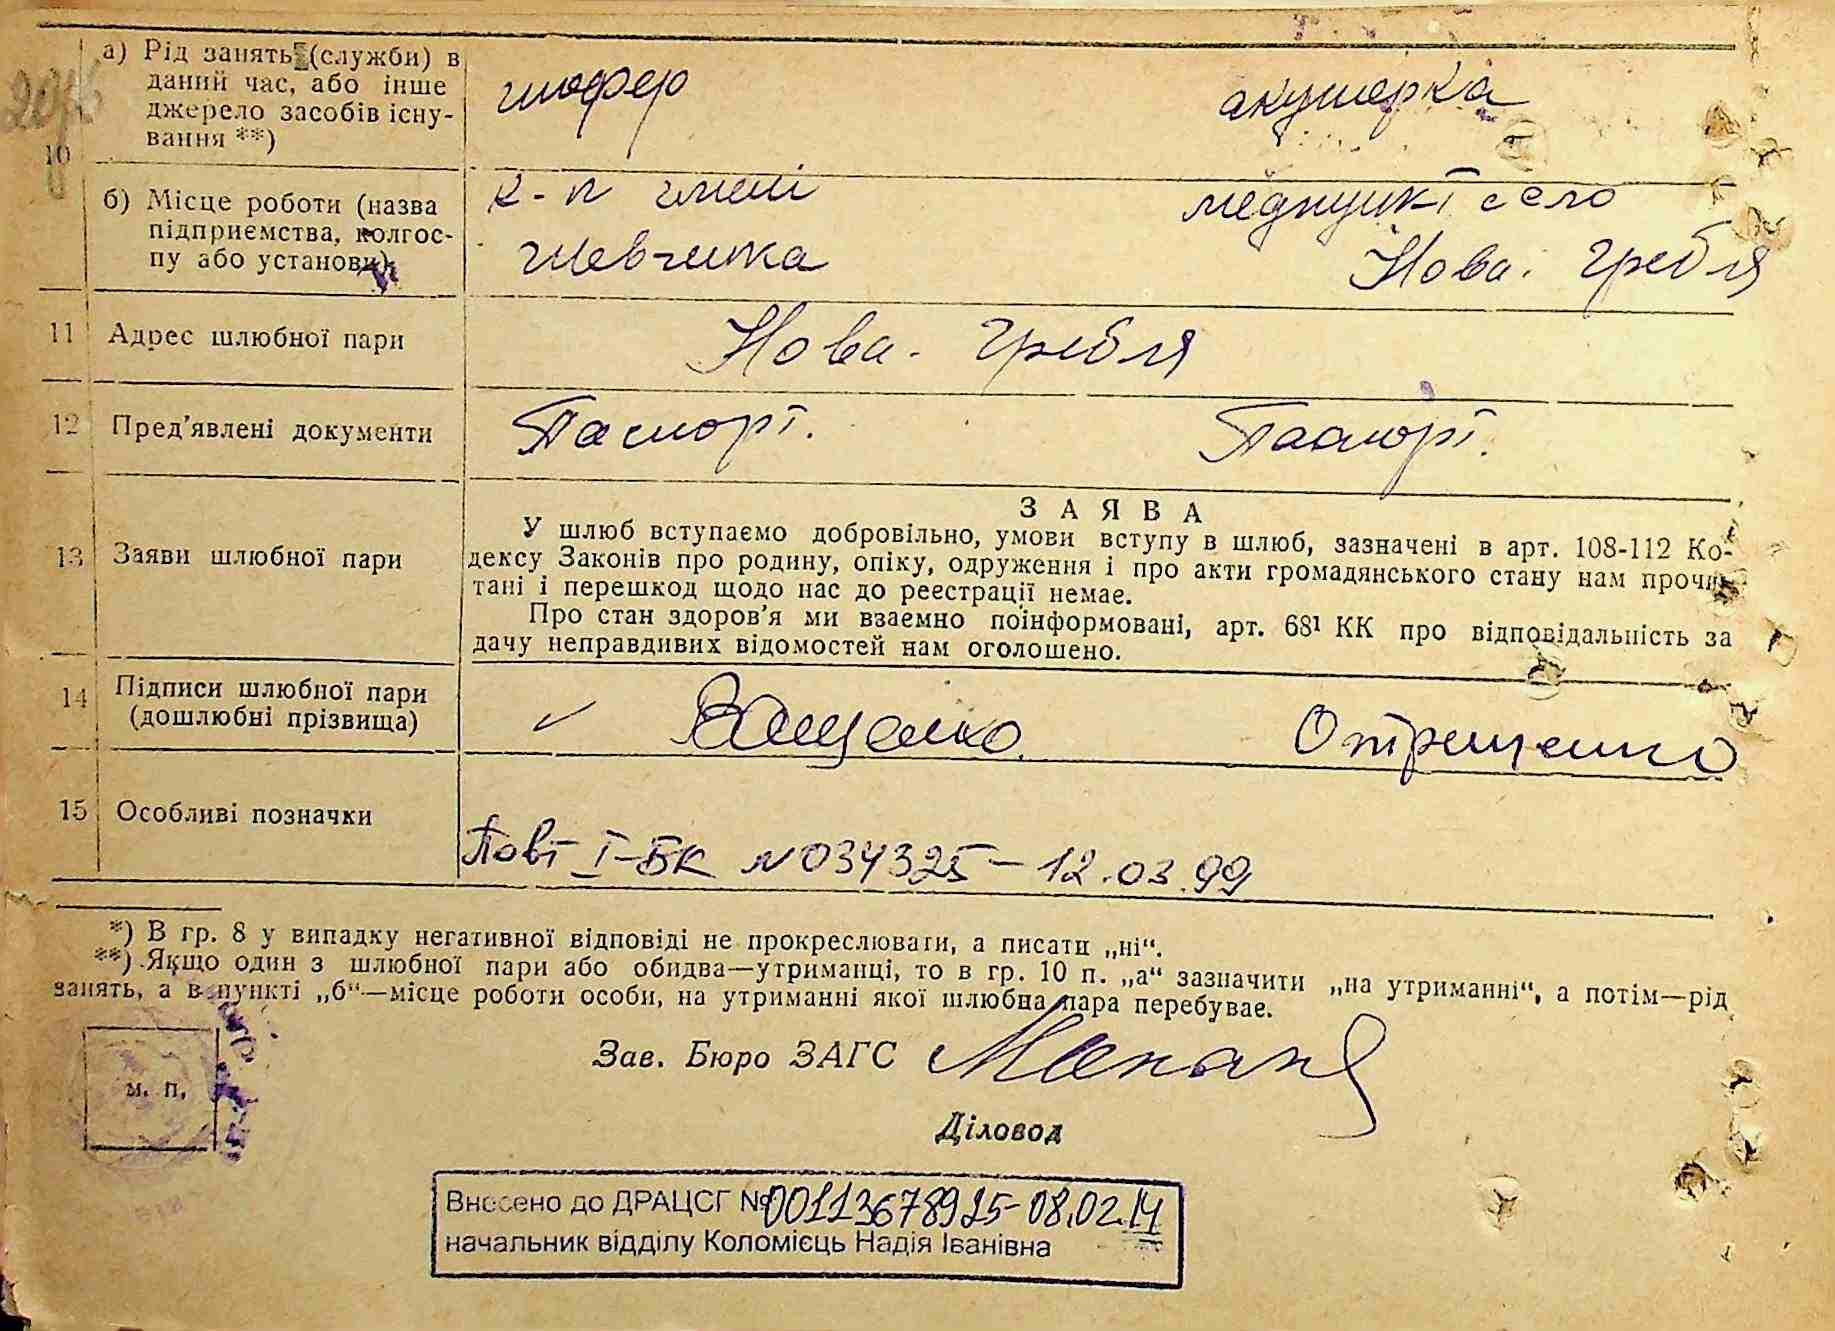 а) Рід занять (служби) в
даний час, або інше
джерело засобів існу-
вання **)
шофер
акушерка
10
б) Місце роботи (назва
підприємства, колгос-
пу або установи)
к-п імені
Шевченка
медпункт село
Нова. Гребля
11 Адрес шлюбної пари
Нова. Гребля
12 Пред'явлені документи
Паспорт.
Паспорт.
13 Заяви шлюбної пари
ЗАЯВА
У шлюб вступаємо добровільно, умови вступу в шлюб, зазначені в арт. 108-112 Ко-
дексу Законів про родину, опіку, одруження і про акти громадянського стану нам прочи-
тані і перешкод щодо нас до реєстрації немає.
Про стан здоров'я ми взаємно поінформовані, арт. 68¹ КК про відповідальність за
дачу неправдивих відомостей нам оголошено.
14 Підписи шлюбної пари
(дошлюбні прізвища)
Ващенко
Отрешенко
15 Особливі позначки
Повт І-БК N 034325 - 12.03.99
*) В гр. 8 у випадку негативної відповіді не прокреслювати, а писати „ні“.
**) Якщо один з шлюбної пари або обидва—утриманці, то в гр. 10 п. „а“ зазначити „на утриманні“, а потім—рід
занять, а в пункті „б“—місце роботи особи, на утриманні якої шлюбна пара перебуває.
Зав. Бюро ЗАГС
м. п.
Діловод
Внесено до ДРАЦСГ № 00113678925-08.02.14
начальник відділу Коломієць Надія Іванівна